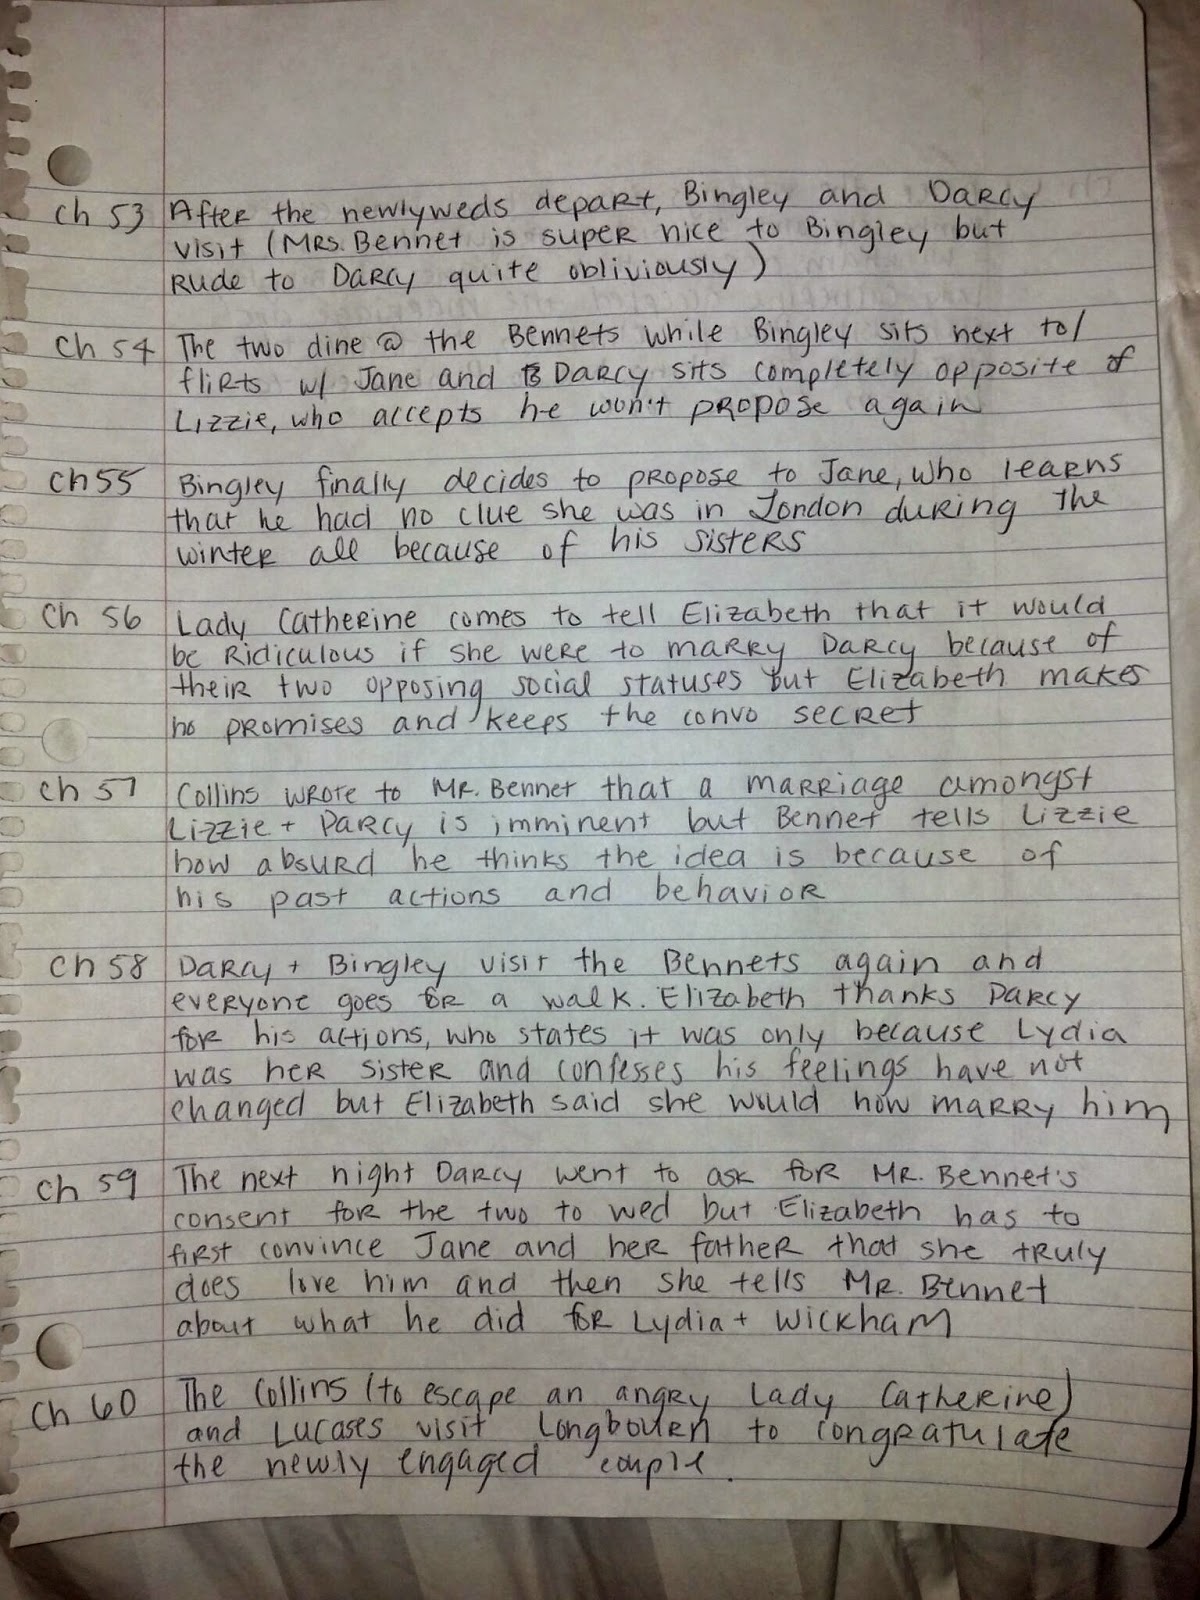 Ch 53 After the newlyweds depart, Bingley and Darcy
visit (Mrs. Bennet is super nice to Bingley but
rude to Darcy quite obliviously)
Ch 54 The two dine @ the Bennets while Bingley sits next to/
flirts w/ Jane and Darcy sits completely opposite of
Lizzie, who accepts he won't propose again
Ch 55 Bingley finally decides to propose to Jane, who learns
that he had no clue she was in London during the
winter all because of his sisters
Ch 56 Lady Catherine comes to tell Elizabeth that it would
be ridiculous if she were to marry Darcy because of
their two opposing social statuses but Elizabeth makes
no promises and keeps the convo secret
Ch 57 Collins wrote to Mr. Bennet that a marriage amongst
Lizzie + Darcy is imminent but Bennet tells Lizzie
how absurd he thinks the idea is because of
his past actions and behavior
Ch 58 Darcy + Bingley visit the Bennets again and
everyone goes for a walk. Elizabeth thanks Darcy
for his actions, who states it was only because Lydia
was her sister and confesses his feelings have not
changed but Elizabeth said she would now marry him
Ch 59 The next night Darcy went to ask for Mr. Bennet's
consent for the two to wed but Elizabeth has to
first convince Jane and her father that she truly
does love him and then she tells Mr. Bennet
about what he did for Lydia + Wickham
Ch 60 The Collins (to escape an angry Lady Catherine)
and Lucases visit Longbourn to congratulate
the newly engaged couple.